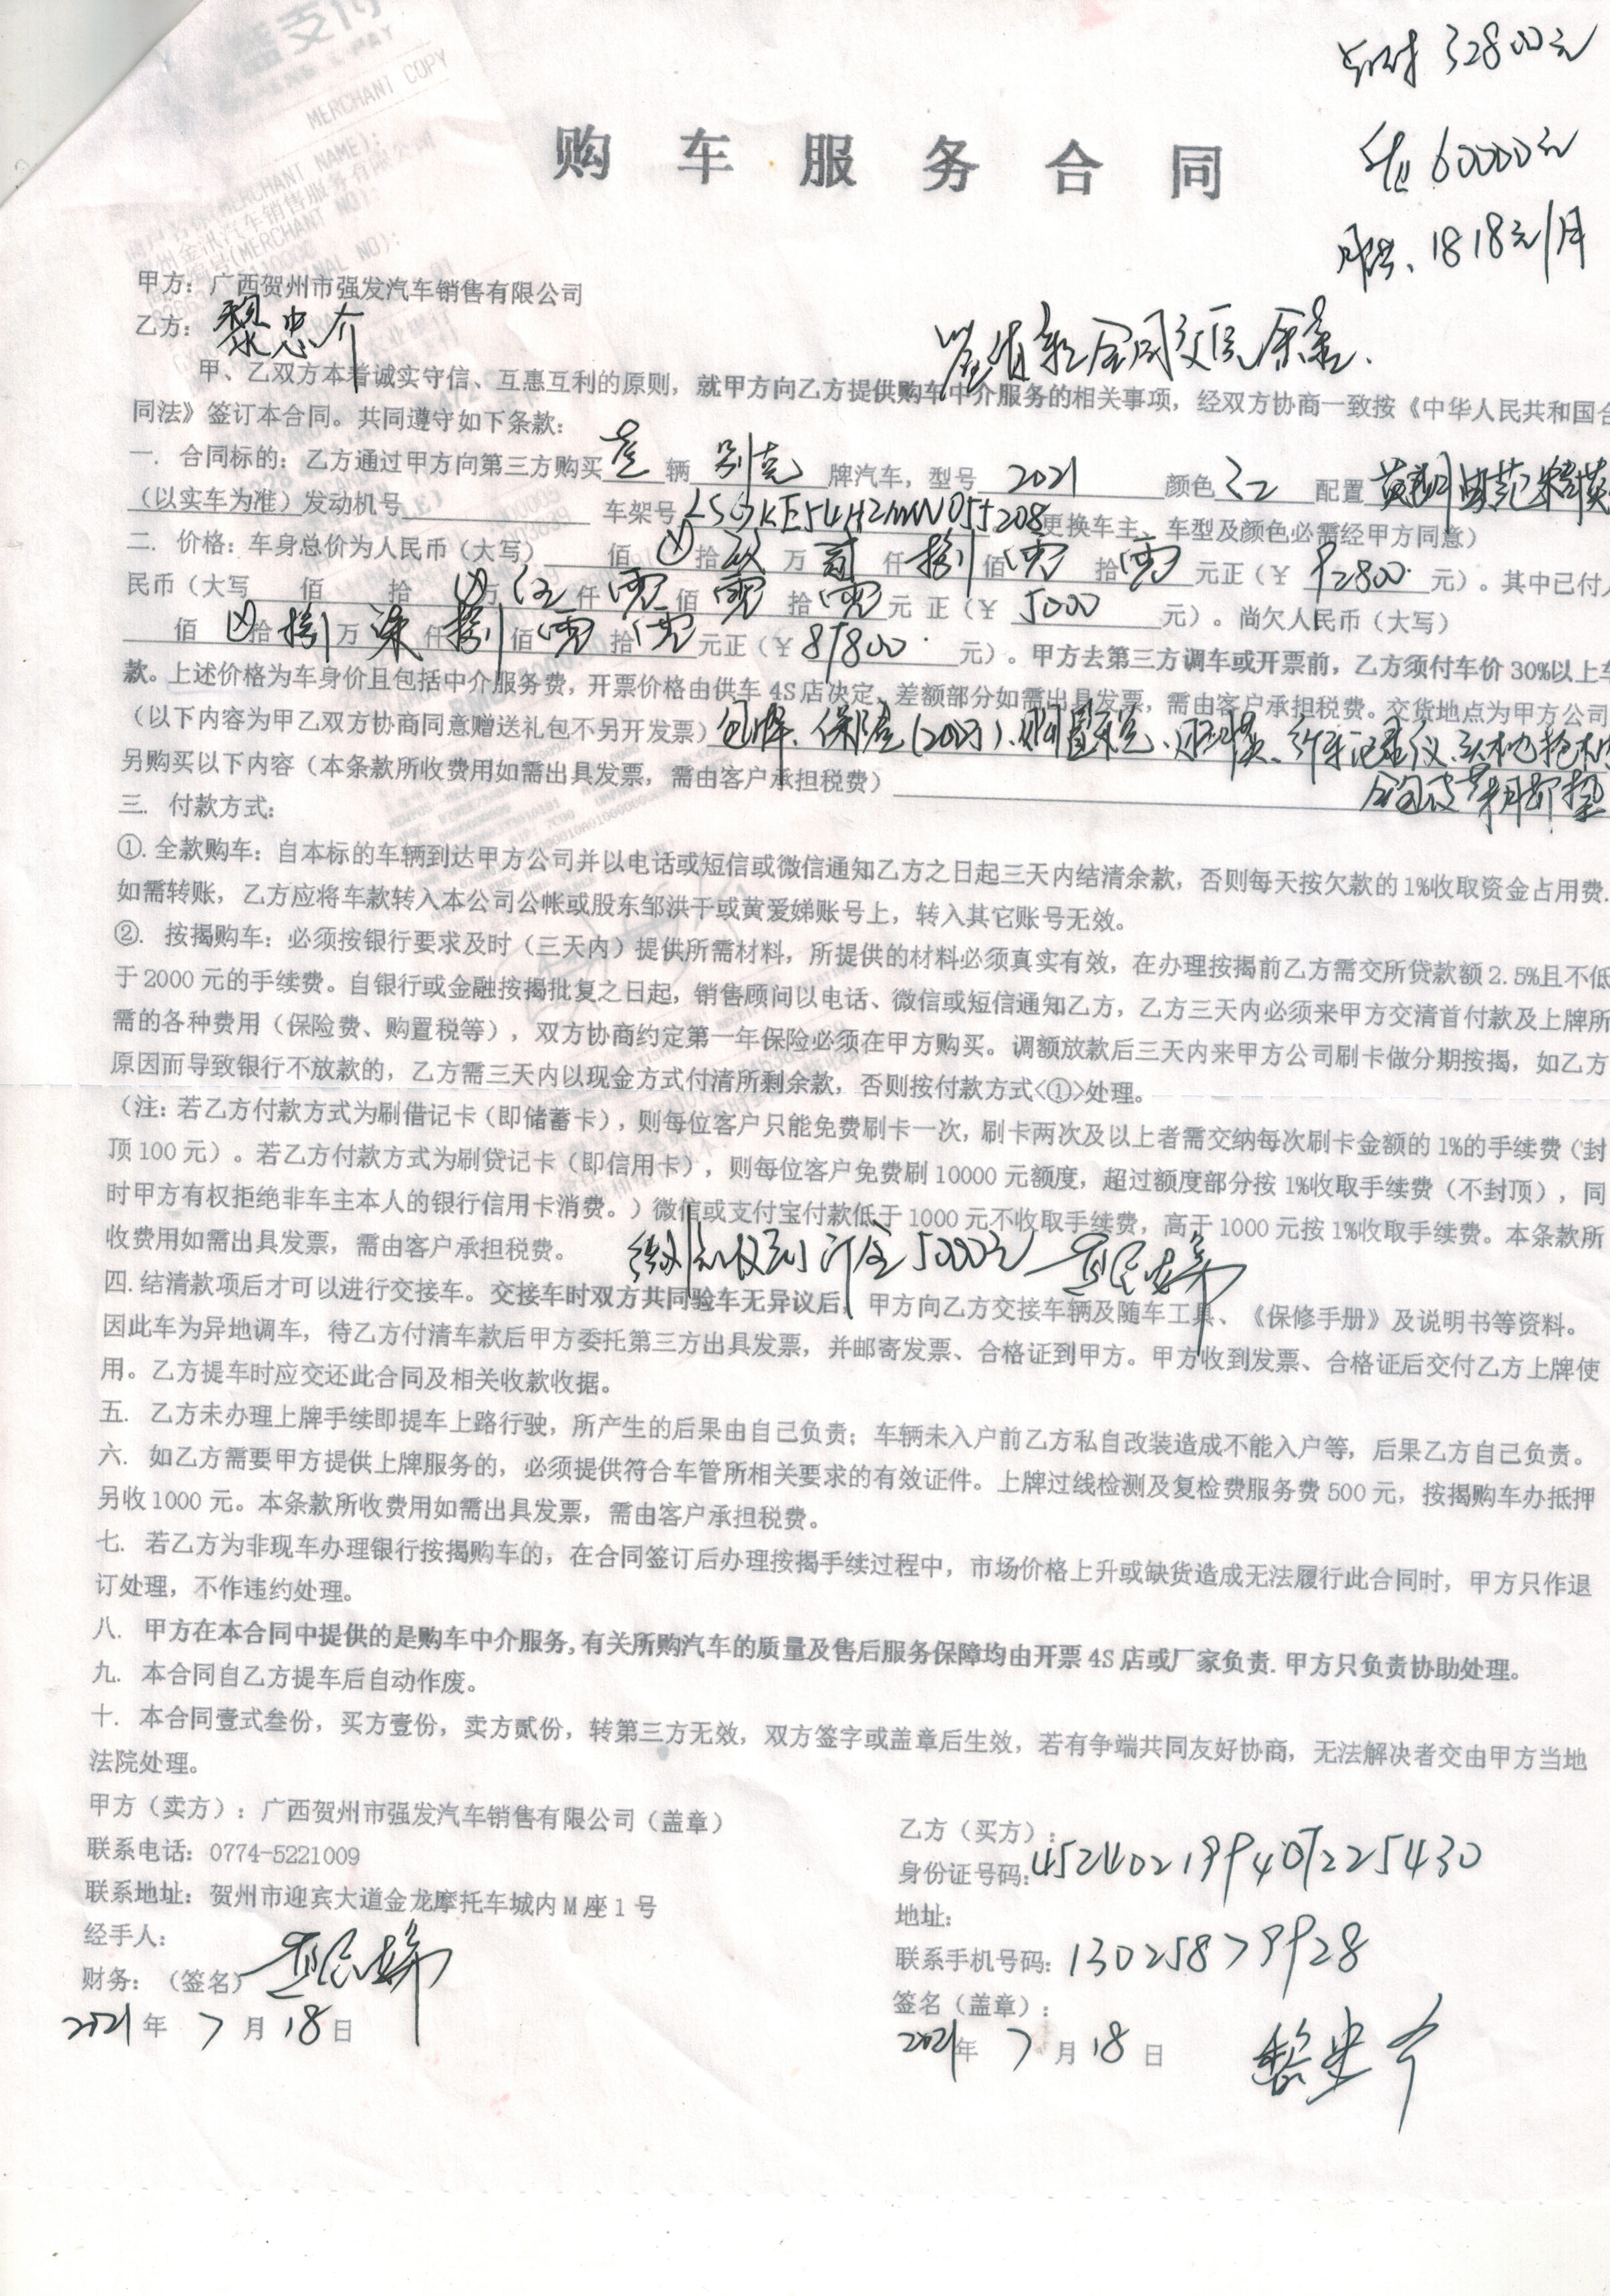 首付 32800元
贷 60000元
月供、1818元/月
MERCHANT COPY
购车服务合同
甲方：广西贺州市强发汽车销售有限公司
乙方：黎忠介
甲、乙双方本着诚实守信、互惠互利的原则，就甲方向乙方提供购车中介服务的相关事项，经双方协商一致按《中华人民共和国合
同法》签订本合同。共同遵守如下条款：
一. 合同标的：乙方通过甲方向第三方购买壹辆 别克 牌汽车，型号 2021 颜色 红 配置 英朗
（以实车为准）发动机号 车架号 更换车主、车型及颜色必需经甲方同意）
二. 价格：车身总价为人民币（大写） 佰 拾 玖 万 贰 仟 捌 佰 零 拾 零 元正（￥ 92800 元）。其中已付人
民币（大写 佰 拾 万 伍 仟 零 佰 零 拾 零 元 正（￥ 5000 元）。尚欠人民币（大写）
佰 拾 捌 万 柒 仟 捌 佰 零 拾 零 元正（￥ 87800 元）。甲方去第三方调车或开票前，乙方须付车价 30%以上车
款。上述价格为车身价且包括中介服务费，开票价格由供车 4S 店决定，差额部分如需出具发票，需由客户承担税费。交货地点为甲方公司
（以下内容为甲乙双方协商同意赠送礼包不另开发票）包牌、保险、购置税、行车记录仪
另购买以下内容（本条款所收费用如需出具发票，需由客户承担税费）
三. 付款方式：
①. 全款购车：自本标的车辆到达甲方公司并以电话或短信或微信通知乙方之日起三天内结清余款，否则每天按欠款的 1%收取资金占用费.
如需转账，乙方应将车款转入本公司公帐或股东邹洪干或黄爱娣账号上，转入其它账号无效。
②. 按揭购车：必须按银行要求及时（三天内）提供所需材料，所提供的材料必须真实有效，在办理按揭前乙方需交所贷款额 2.5%且不低
于 2000 元的手续费。自银行或金融按揭批复之日起，销售顾问以电话、微信或短信通知乙方，乙方三天内必须来甲方交清首付款及上牌所
需的各种费用（保险费、购置税等），双方协商约定第一年保险必须在甲方购买。调额放款后三天内来甲方公司刷卡做分期按揭，如乙方
原因而导致银行不放款的，乙方需三天内以现金方式付清所剩余款，否则按付款方式<①>处理。
（注：若乙方付款方式为刷借记卡（即储蓄卡），则每位客户只能免费刷卡一次，刷卡两次及以上者需交纳每次刷卡金额的 1%的手续费（封
顶 100 元）。若乙方付款方式为刷贷记卡（即信用卡），则每位客户免费刷 10000 元额度，超过额度部分按 1%收取手续费（不封顶），同
时甲方有权拒绝非车主本人的银行信用卡消费。）微信或支付宝付款低于 1000 元不收取手续费，高于 1000 元按 1%收取手续费。本条款所
收费用如需出具发票，需由客户承担税费。 收到订金5000元 黄爱娣
四. 结清款项后才可以进行交接车。交接车时双方共同验车无异议后，甲方向乙方交接车辆及随车工具、《保修手册》及说明书等资料。
因此车为异地调车，待乙方付清车款后甲方委托第三方出具发票，并邮寄发票、合格证到甲方。甲方收到发票、合格证后交付乙方上牌使
用。乙方提车时应交还此合同及相关收款收据。
五. 乙方未办理上牌手续即提车上路行驶，所产生的后果由自己负责；车辆未入户前乙方私自改装造成不能入户等，后果乙方自己负责。
六. 如乙方需要甲方提供上牌服务的，必须提供符合车管所相关要求的有效证件。上牌过线检测及复检费服务费 500 元，按揭购车办抵押
另收 1000 元。本条款所收费用如需出具发票，需由客户承担税费。
七. 若乙方为非现车办理银行按揭购车的，在合同签订后办理按揭手续过程中，市场价格上升或缺货造成无法履行此合同时，甲方只作退
订处理，不作违约处理。
八. 甲方在本合同中提供的是购车中介服务，有关所购汽车的质量及售后服务保障均由开票 4S 店或厂家负责. 甲方只负责协助处理。
九. 本合同自乙方提车后自动作废。
十. 本合同壹式叁份，买方壹份，卖方贰份，转第三方无效，双方签字或盖章后生效，若有争端共同友好协商，无法解决者交由甲方当地
法院处理。
甲方（卖方）：广西贺州市强发汽车销售有限公司（盖章）
联系电话：0774-5221009
联系地址：贺州市迎宾大道金龙摩托车城内 M 座 1 号
经手人：
财务：（签名）黄爱娣
2021 年 7 月 18 日
乙方（买方）：
身份证号码：452402199407225430
地址：
联系手机号码：13025879928
签名（盖章）：
2021年 7 月 18 日 黎忠介